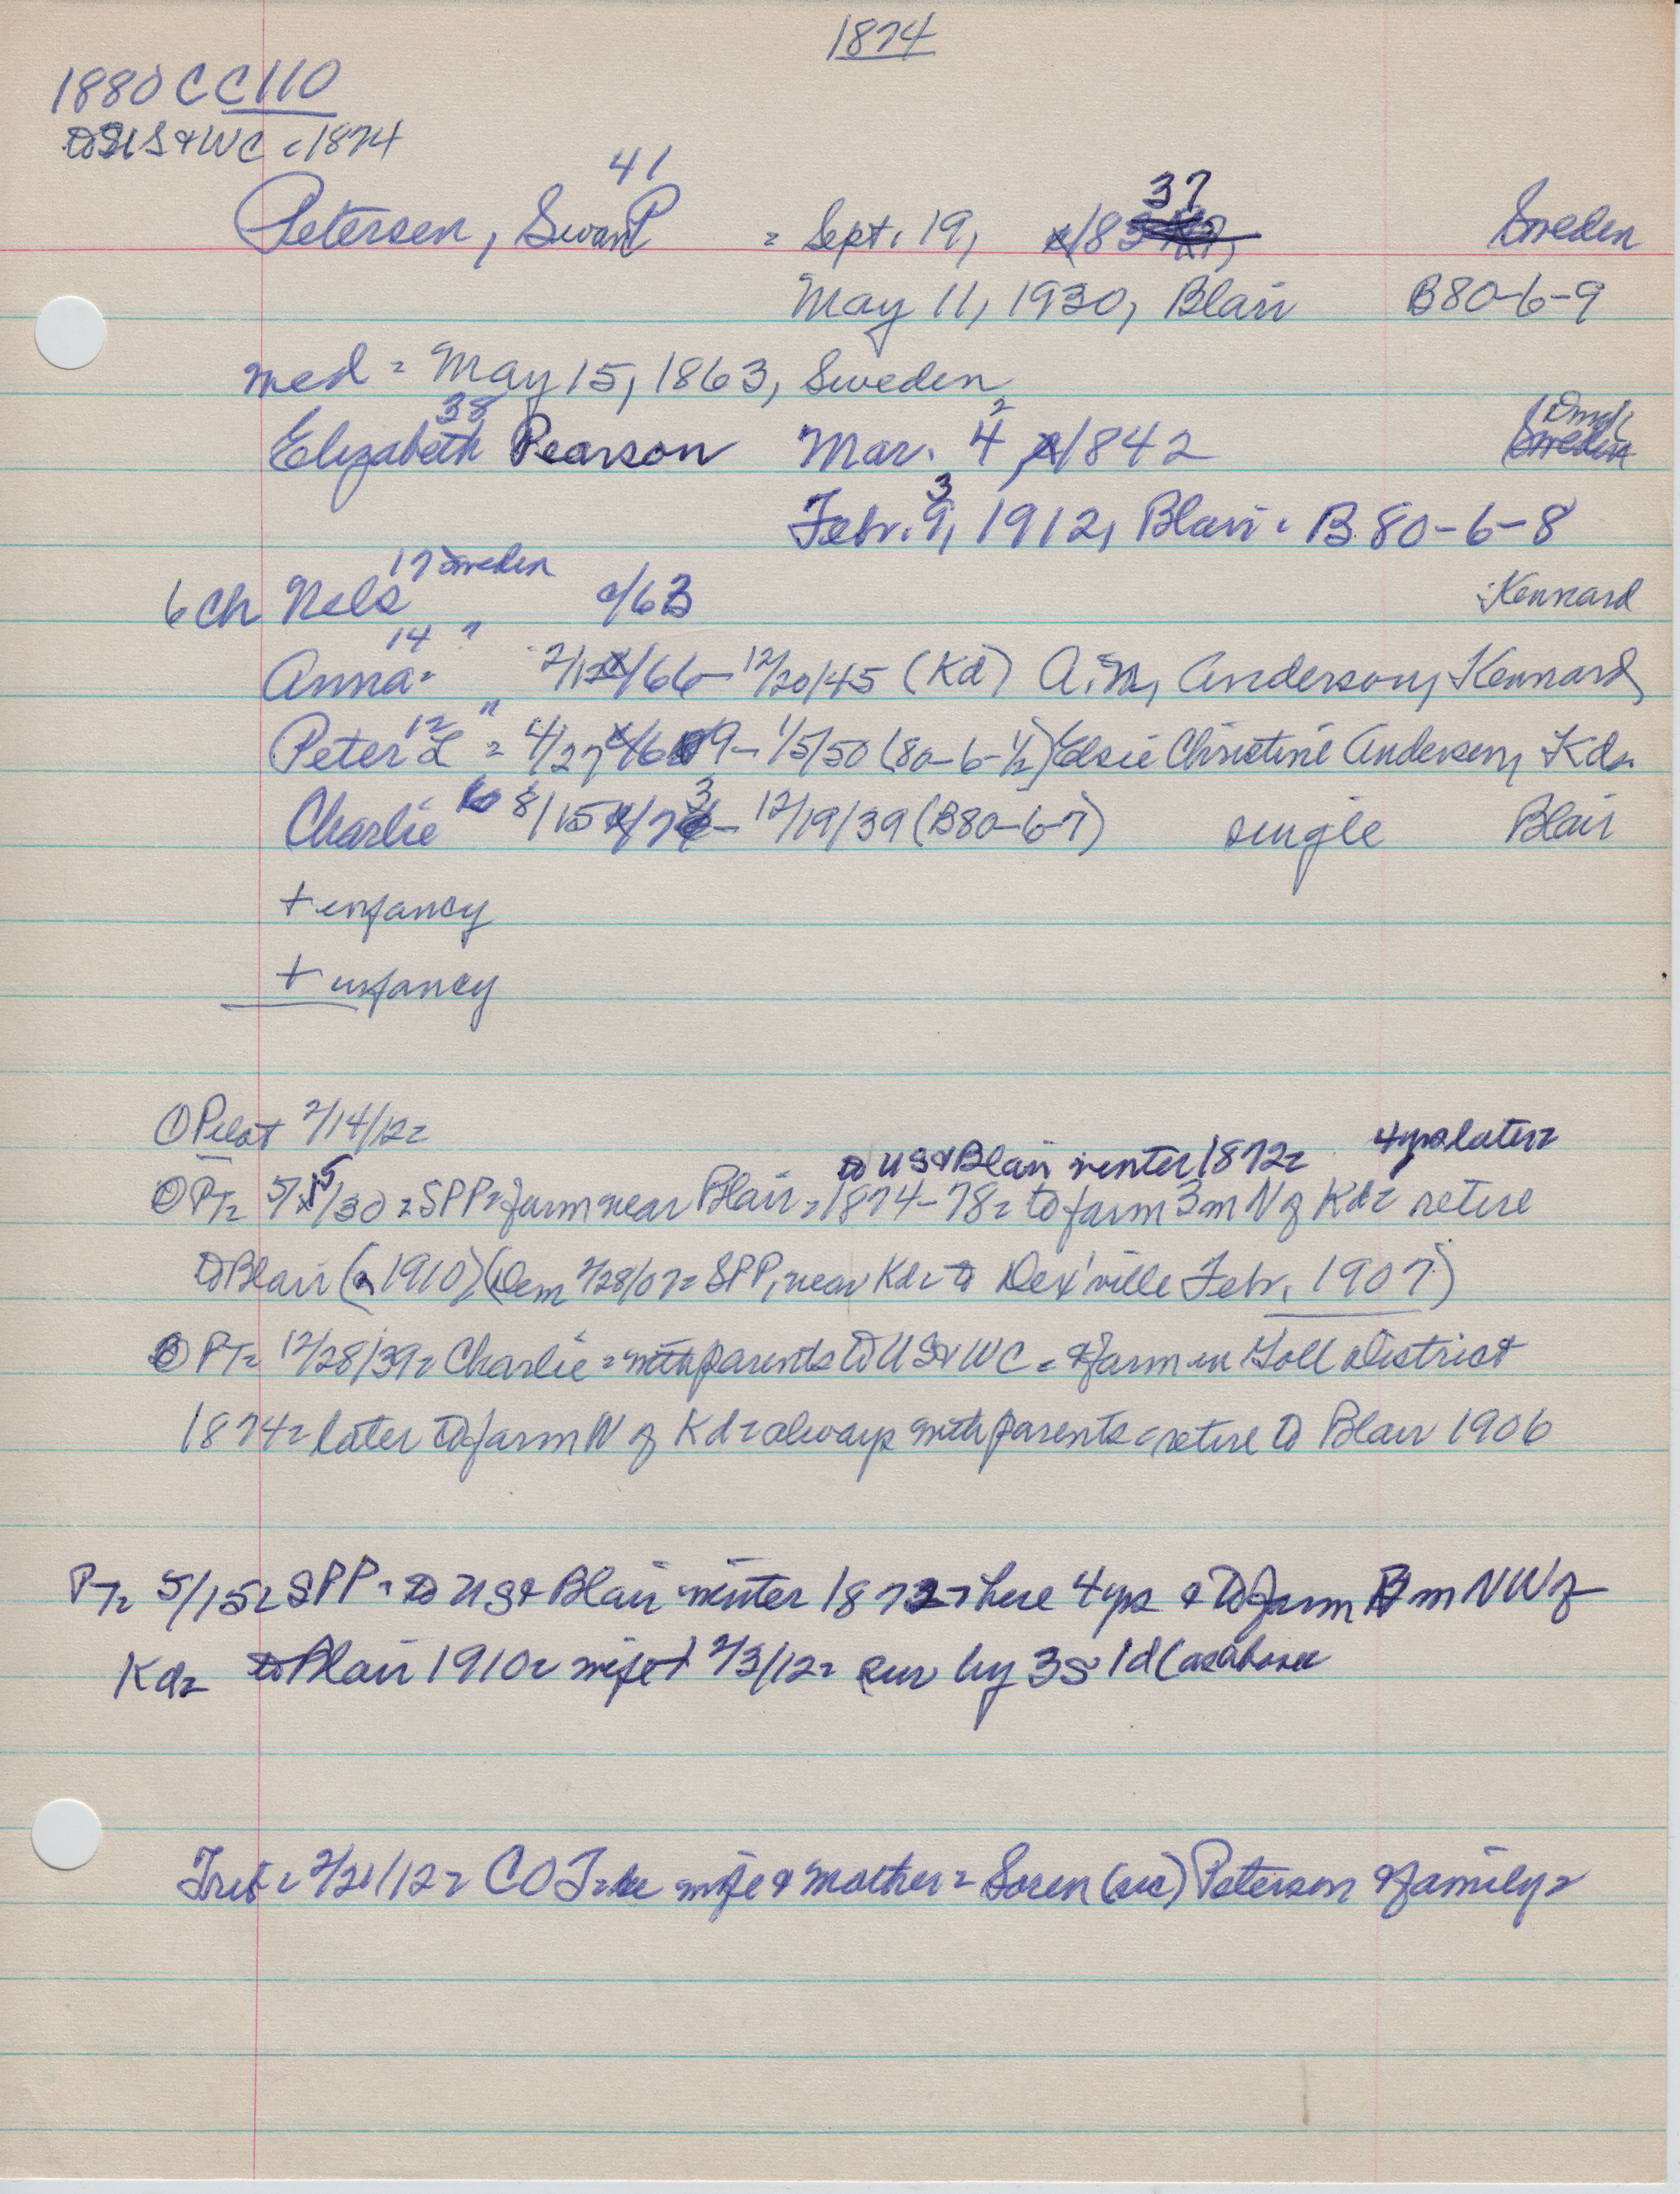 1874
1880 CC110
to US & WC = 1874
41
Petersen, Swan P = Sept. 19, 1837 Sweden
May 11, 1930, Blair B80-6-9
med = May 15, 1863, Sweden
38 2
Elizabeth Pearson Mar. 4, 1842 Sweden
3
Febr. 9, 1912, Blair = B 80-6-8
17 Sweden
6 ch Nels c/63 Kennard
14 "
Anna = 2/12/66 - 12/20/45 (Kd) A.M. Anderson, Kennard
12 "
Peter L = 4/27/69 - 1/5/50 (80-6-1/2) Elsie Christine Andersen, Kd=
Charlie 8/15/73 - 12/19/39 (B80-6-7) single Blair
+ infancy
+ infancy
① Pilot 2/14/12=
to US & Blair winter 1872= 4 yrs later=
② PT= 5/15/30 = SPP = farm near Blair = 1874-78 = to farm 3 m N of Kd= retire
to Blair (1910) (Dem 2/28/07= SPP, near Kd= to Dex'ville Febr. 1907)
③ PT= 12/28/39= Charlie = with parents to US & WC = & farm in Goll District
1874= later to farm N of Kd= always with parents = retire to Blair 1906
PT= 5/15= SPP = to US & Blair winter 1872= here 4 yrs & to farm m NW of
Kd= to Blair 1910= wife + 2/3/12= sur by 3s 1d (as above
Trib = 2/21/12= COT= wife & mother = Soren (sic) Peterson & family=